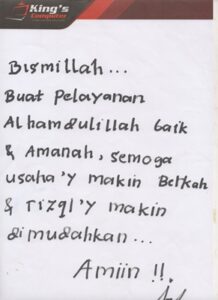 King's
Computer
Bismillah...
Buat Pelayanan
Alhamdulillah baik
& Amanah, semoga
usaha'y makin Berkah
& rizql'y makin
dimudahkan...
Amiin !!.